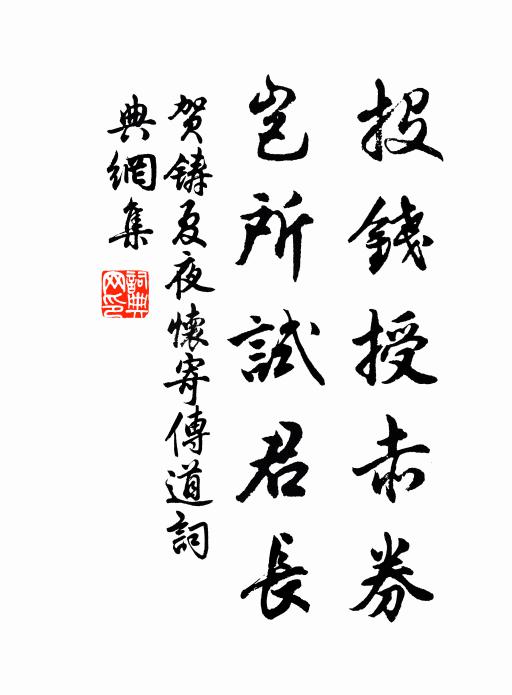 投錢授赤券
豈所試君長
賀鑄夏夜懷寄傳道詞
典網集
詞典網印